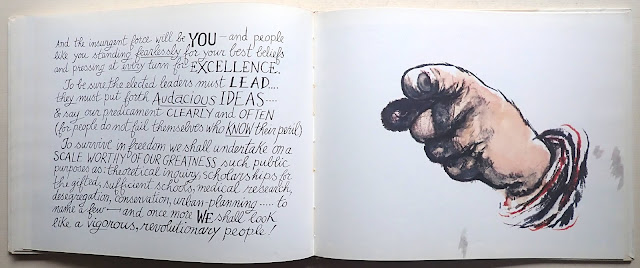 And the insurgent force will be YOU — and people
like you standing fearlessly for your best beliefs
and pressing at every turn for EXCELLENCE.
To be sure the elected leaders must LEAD....
they must put forth Audacious IDEAS....
& say our predicament CLEARLY and OFTEN
(for people do not fail themselves who KNOW their peril)
To survive in freedom we shall undertake on a
SCALE WORTHY OF OUR GREATNESS such public
purposes as: theoretical inquiry, scholarships for
the gifted, sufficient schools, medical research,
desegregation, conservation, urban-planning ..... to
name a few — and once more WE shall look
like a vigorous, revolutionary people!